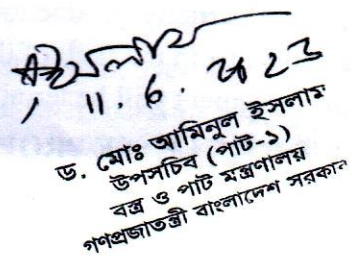 11.6.2023
ড. মোঃ আমিনুল ইসলাম
উপসচিব (পাট-১)
বস্ত্র ও পাট মন্ত্রণালয়
গণপ্রজাতন্ত্রী বাংলাদেশ সরকার